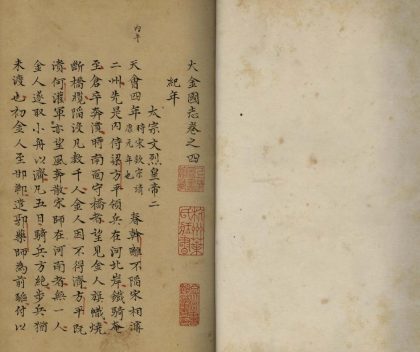 大金國志卷之四
紀年
太宗文烈皇帝二
丙午
天會四年時宋欽宗靖康元年也春幹離不陷宋相濬
二州先是內侍梁方平領兵在河北岸鐵騎奄
至倉卒奔潰時南面守橋者望見金人旗幟燒
斷橋纜陷沒凡數千人金人因不得濟方平既
潰何灌軍亦望風奔散宋師在河南者無一人
金人遂取小舟以濟凡五日騎兵方絕步兵猶
未渡也初金人至邯鄲遣郭藥師為前驅付以